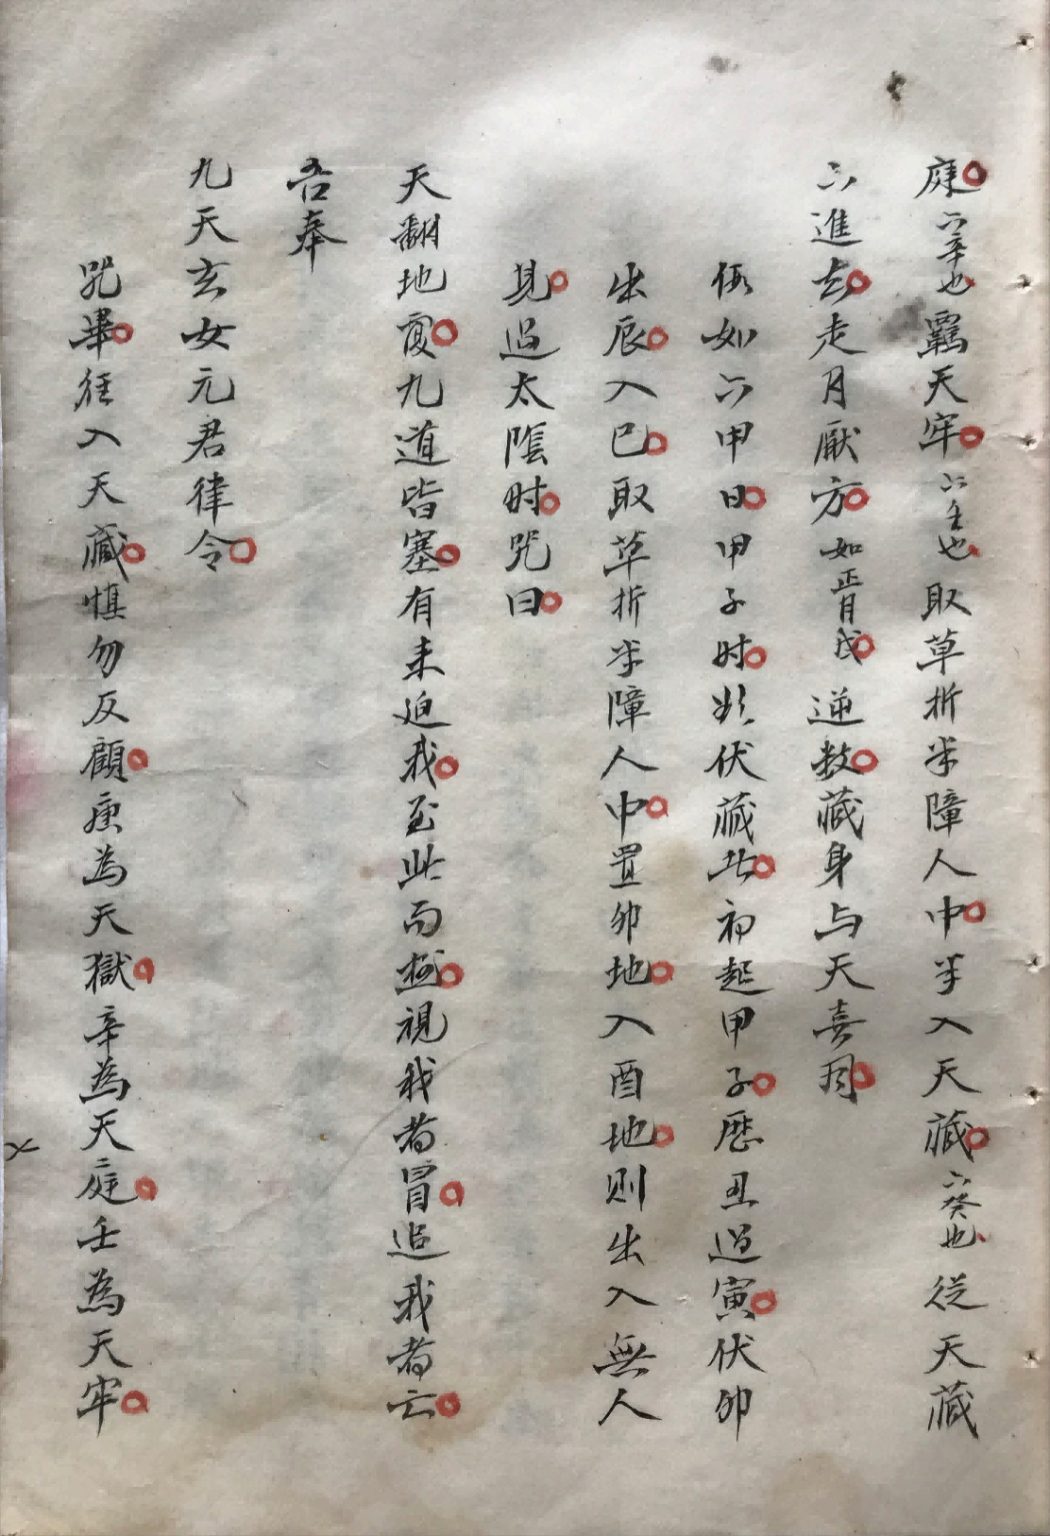 庭六辛也羁天牢六壬也取草折半障人中半入天藏六癸也從天藏
六進去走月厭方如胥戌逆数藏身与天喜同
假如六甲日甲子时欲伏藏此初起甲子歷丑過寅伏卯
出辰入巳取草折半障人中置卯地入酉地則出入無人
見過太陰时咒曰
天翻地覆九道皆塞有来追我至此而極視我者冒追我者亡
吾奉
九天玄女元君律令
咒畢徑入天藏慎勿反顧庚為天獄辛為天庭壬為天牢